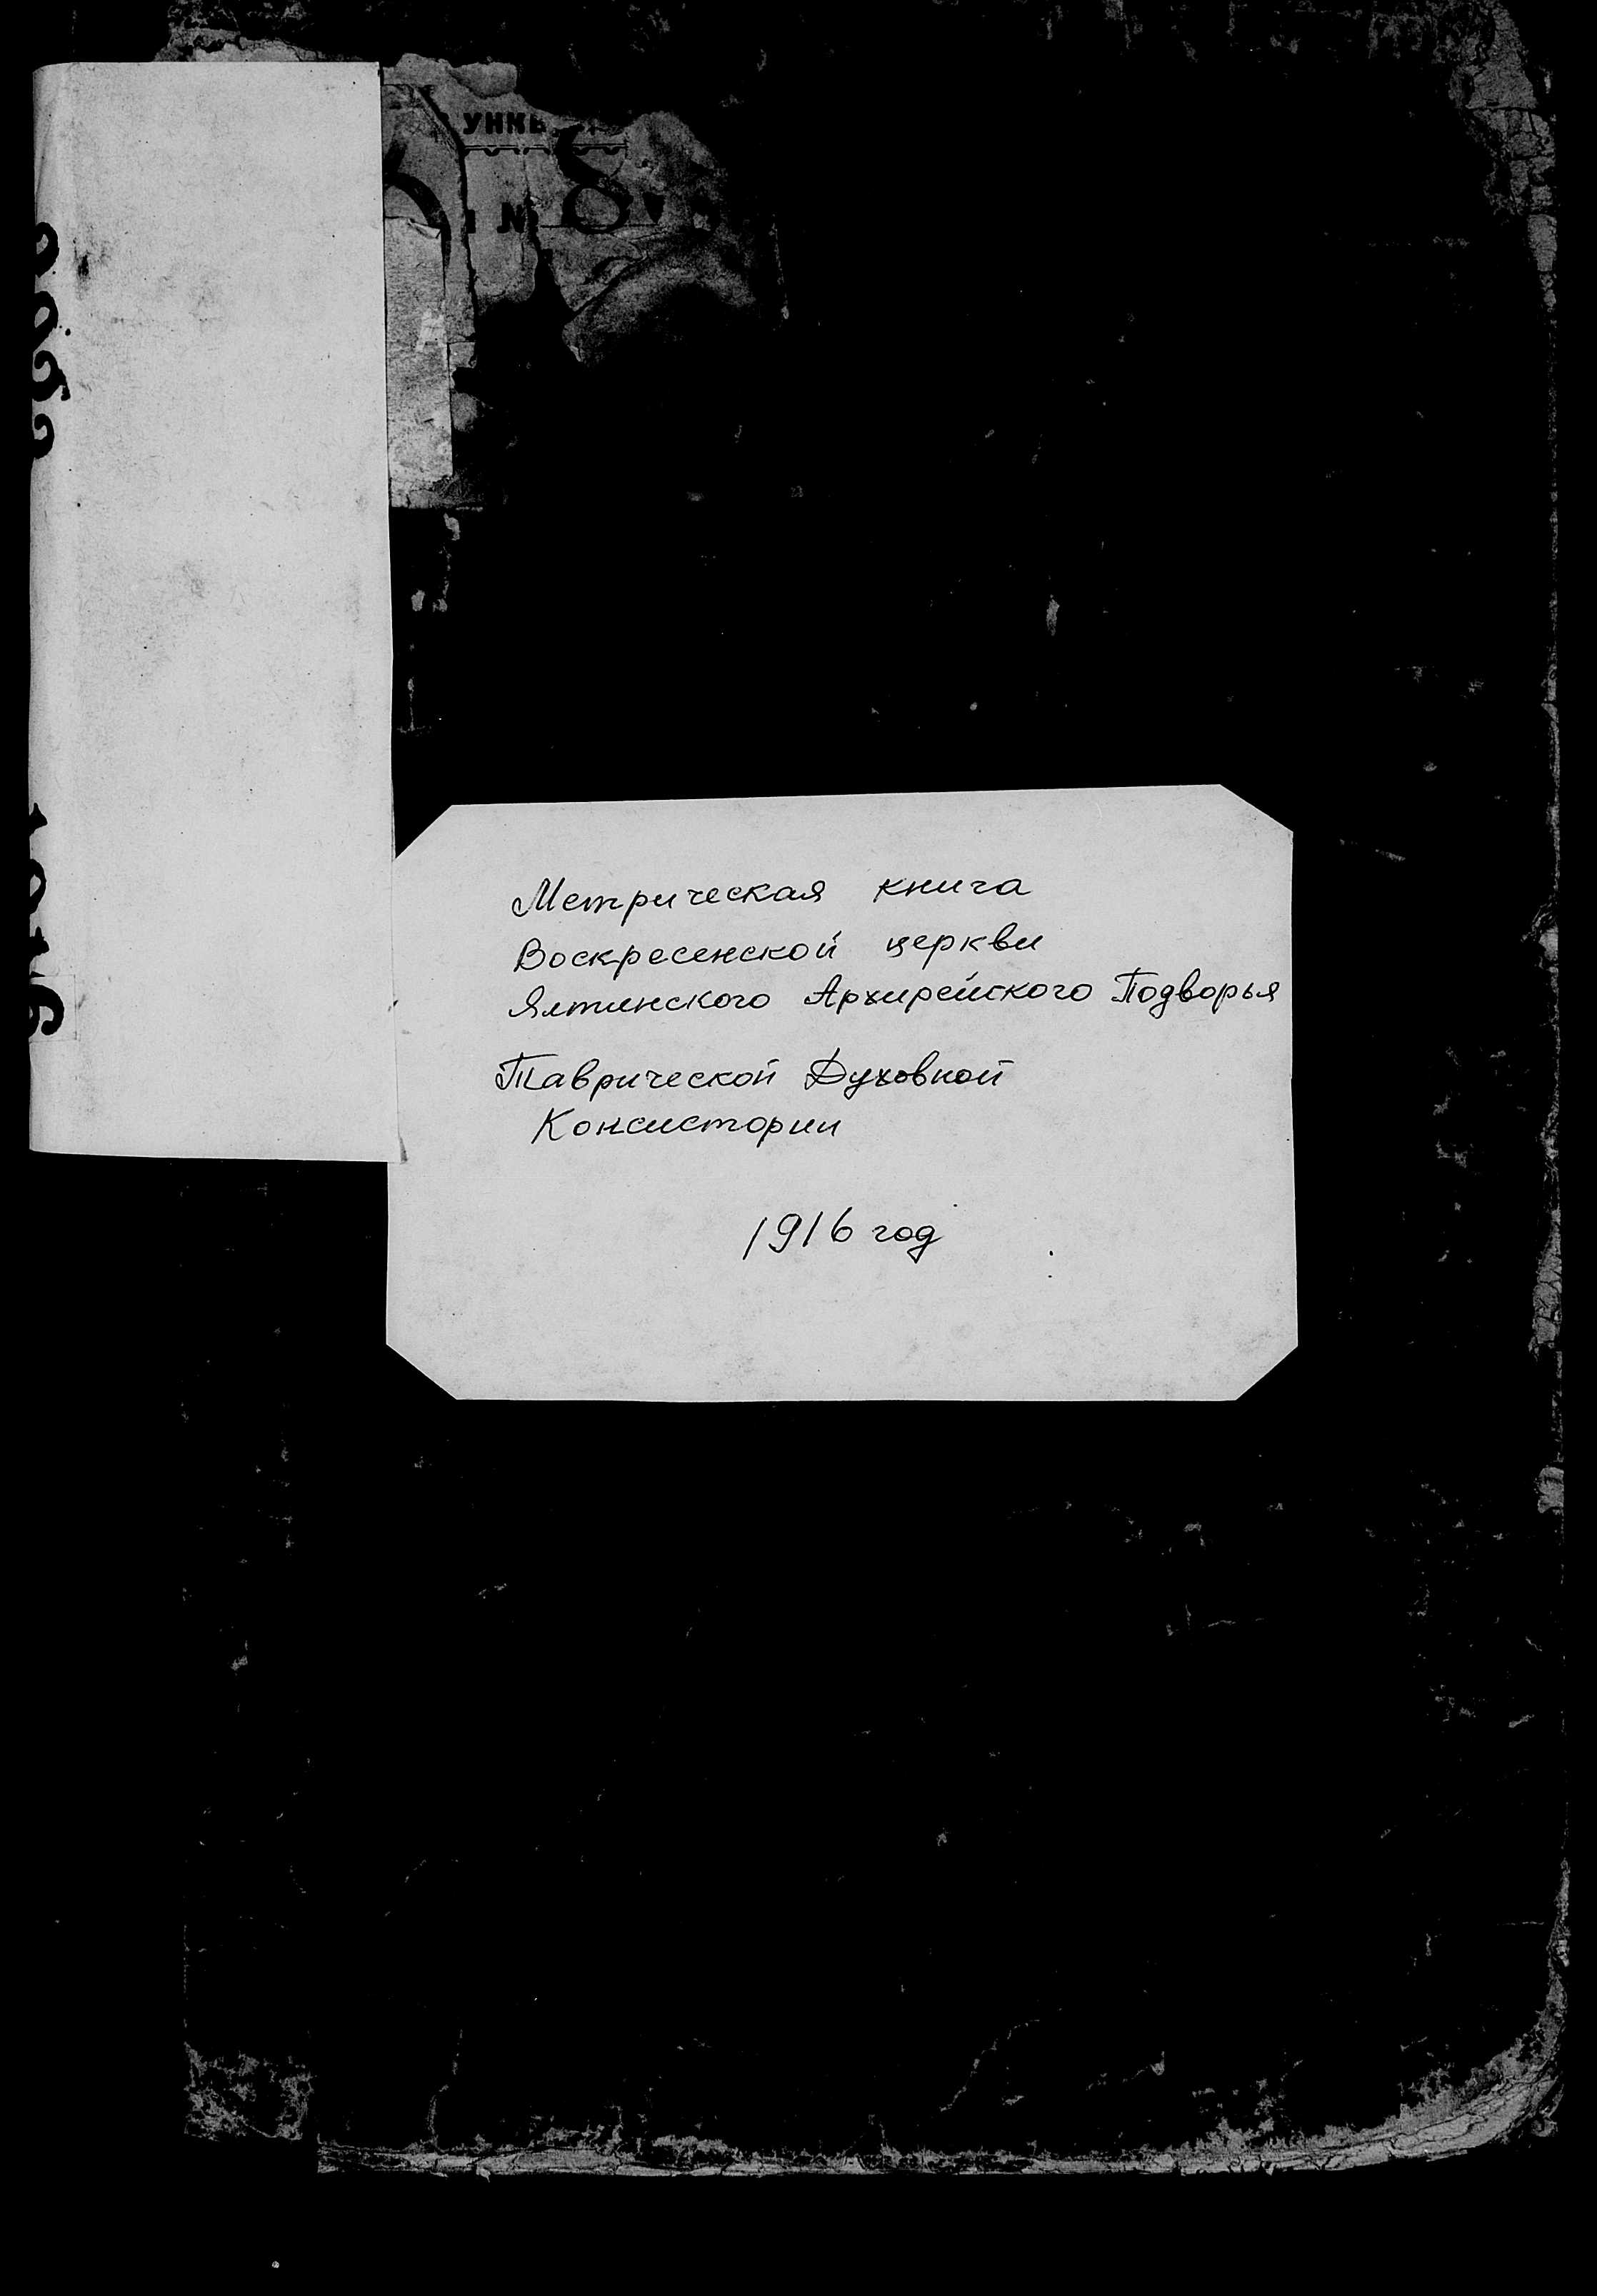 № 8
Метрическая книга
Воскресенской церкви
Ялтинского Архирейского Подворья
Таврической Духовной
Консистории
1916 год